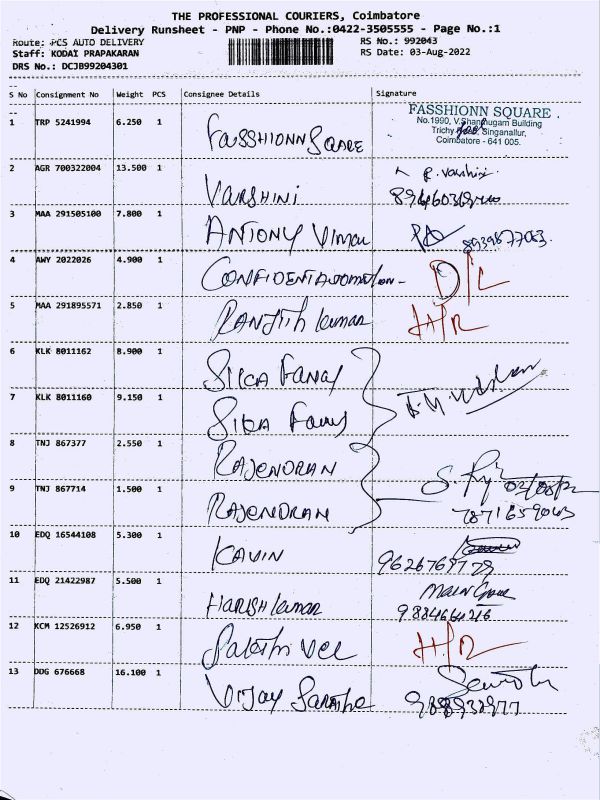 THE PROFESSIONAL COURIERS, Coimbatore
Delivery Runsheet - PNP - Phone No.:0422-3505555 - Page No.:1
Route: PCS AUTO DELIVERY RS No.: 992043
Staff: KODAI PRAPAKARAN RS Date: 03-Aug-2022
DRS No.: DCJB99204301
S No Consignment No Weight PCS Consignee Details Signature
1 TRP 5241994 6.250 1 FASSHIONN SQUARE
FASSHIONN SQUARE
No.1990, V.Shanmugam Building
Trichy Singanallur,
Coimbatore - 641 005.
2 AGR 700322004 13.500 1 VARSHINI
3 MAA 291505100 7.800 1 ANTONY Vimal
4 AWY 2022026 4.900 1 CONFIDENT D/L
5 MAA 291895571 2.850 1 RANJith kumar H/R
6 KLK 8011162 8.900 1
7 KLK 8011160 9.150 1
8 TNJ 867377 2.550 1 RAJENDRAN
9 TNJ 867714 1.500 1 RAJENDRAN
7871659043
10 EDQ 16544108 5.300 1 KAVIN
11 EDQ 21422987 5.500 1 HARISH kumar
9884664216
12 KCM 12526912 6.950 1 Sakthi Vel H/R
13 DDG 676668 16.100 1 Vijay